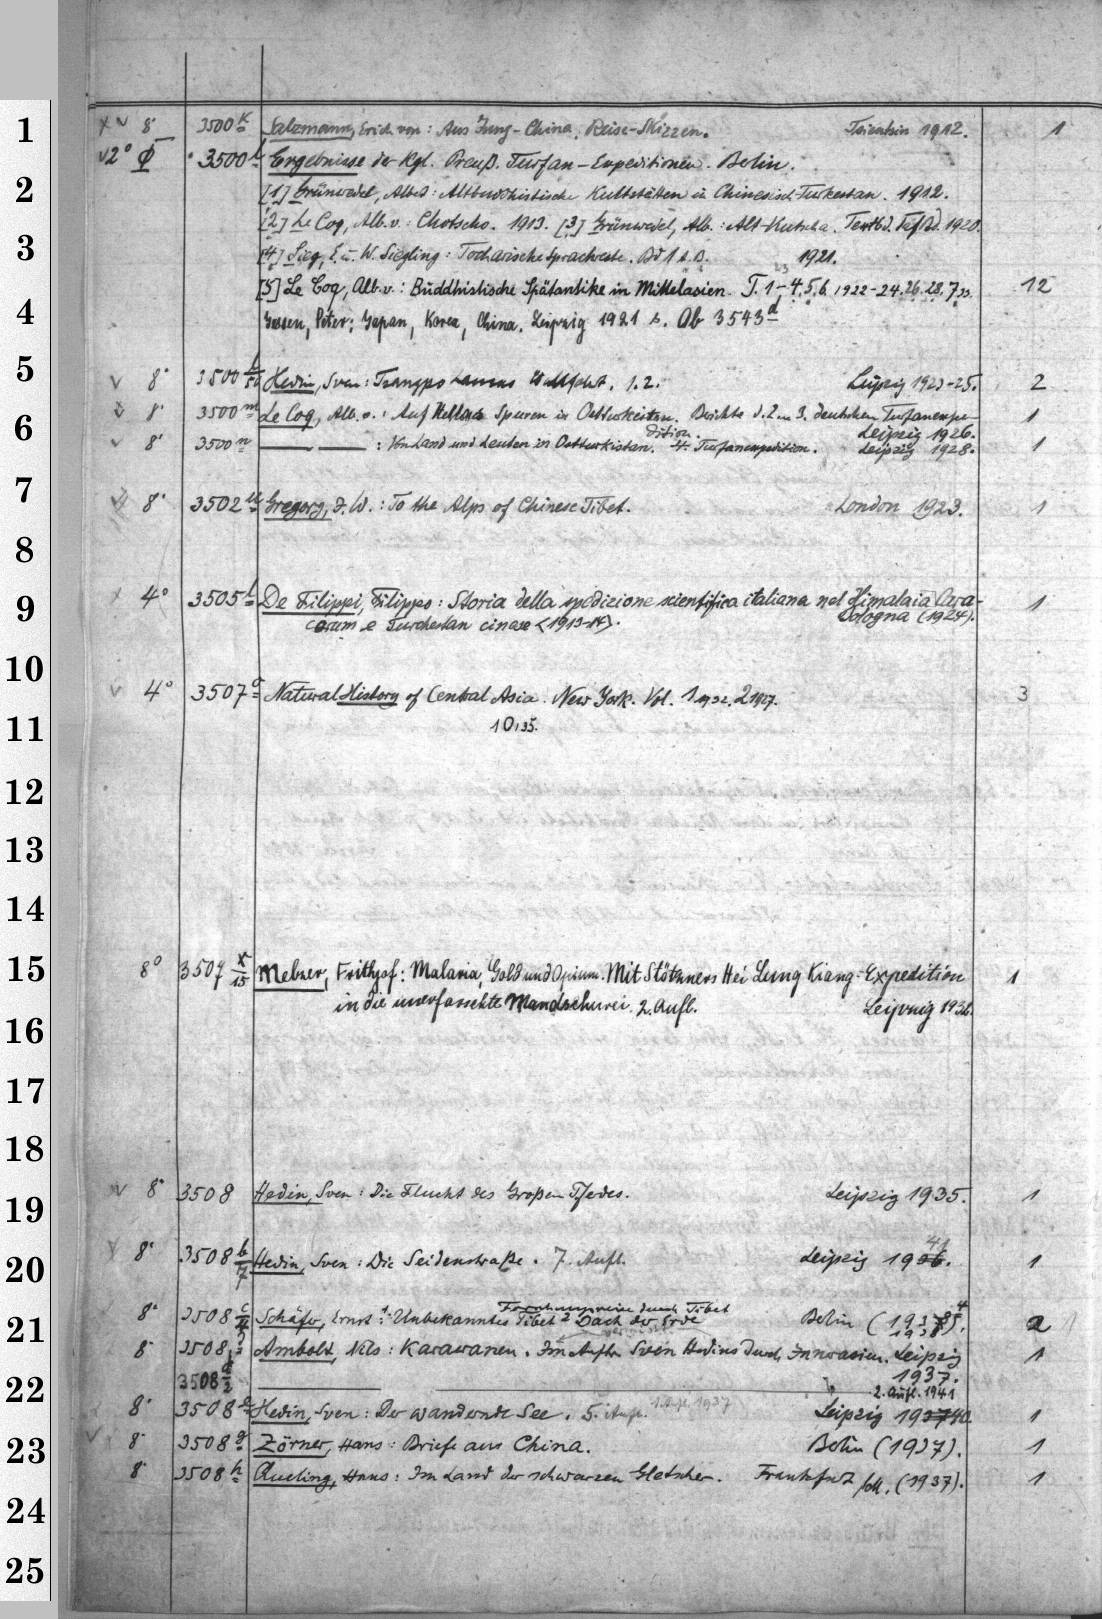 1 8° 3500 k Salzmann, Erich von: Aus Jung-China. Reise-Skizzen. Tsientsin 1912. 1
2° 3500 l Ergebnisse der Kgl. Preuß. Turfan-Expeditionen. Berlin.
2 [1] Grünwedel, Albert: Altbuddhistische Kultstätten in Chinesisch-Turkestan. 1912.
[2] Le Coq, Alb. v.: Chotscho. 1913. [3] Grünwedel, Alb.: Alt-Kutscha. Textbd. Tafbd. 1920.
3 [4] Sieg, E. u. W. Siegling: Tocharische Sprachreste. Bd 1 A. B. 1921.
[5] Le Coq, Alb. v.: Buddhistische Spätantike in Mittelasien. T. 1-4. 5. 6. 1922-24. 26. 28. 7 33. 12
4 Jessen, Peter: Japan, Korea, China. Leipzig 1921 s. Ob 3543 d
5 8° 3500 l/50 Hedin, Sven: Tsangpo Lamas Wallfahrt. 1. 2. Leipzig 1923-25. 2
8° 3500 m Le Coq, Alb. v.: Auf Hellas Spuren in Ostturkistan. Berichte d. 2. u. 3. deutschen Turfanexpe-
6 dition. Leipzig 1926. 1
8° 3500 n —— —— : Von Land und Leuten in Ostturkistan. 4. Turfanexpedition. Leipzig 1928. 1
7 8° 3502 u Gregory, J. W.: To the Alps of Chinese Tibet. London 1923. 1
8
9 4° 3505 l De Filippi, Filippo: Storia della spedizione scientifica italiana nel Himalaia Cara-
corum e Turchestan cinese <1913-14>. Bologna (1924). 1
10 4° 3507 a Natural History of Central Asia. New York. Vol. 1 1932. 2 1927. 3
11 10, 35.
12
13
14
15 8° 3507 x/15 Melzer, Frithjof: Malaria, Gold und Opium. Mit Stötzners Hei Lung Kiang-Expedition 1
in die unerforschte Mandschurei. 2. Aufl. Leipzig 1932.
16
17
18
19 8° 3508 Hedin, Sven: Die Flucht des Großen Pferdes. Leipzig 1935. 1
20 8° 3508 b/7 Hedin, Sven: Die Seidenstraße. 7. Aufl. Leipzig 1936. 41 1
Forschungsreise durch Tibet
21 8° 3508 c Schäfer, Ernst: 1 Unbekanntes Tibet 2 Dach der Erde Berlin (1937). 1938 2
8° 3508 Ambolt, Nils: Karawanen. Im Auftr. Sven Hedins durch Innerasien. Leipzig 1
1937.
22 3508 d/2 —— 2. Aufl. 1941
8° 3508 e Hedin, Sven: Der wandernde See. 5. Aufl. 1. Aufl. 1937 Leipzig 1937 40. 1
23 8° 3508 g Zörner, Hans: Briefe aus China. Berlin (1937). 1
8° 3508 h Queling, Hans: Im Land der schwarzen Gletscher. Frankfurt /M. (1937). 1
24
25